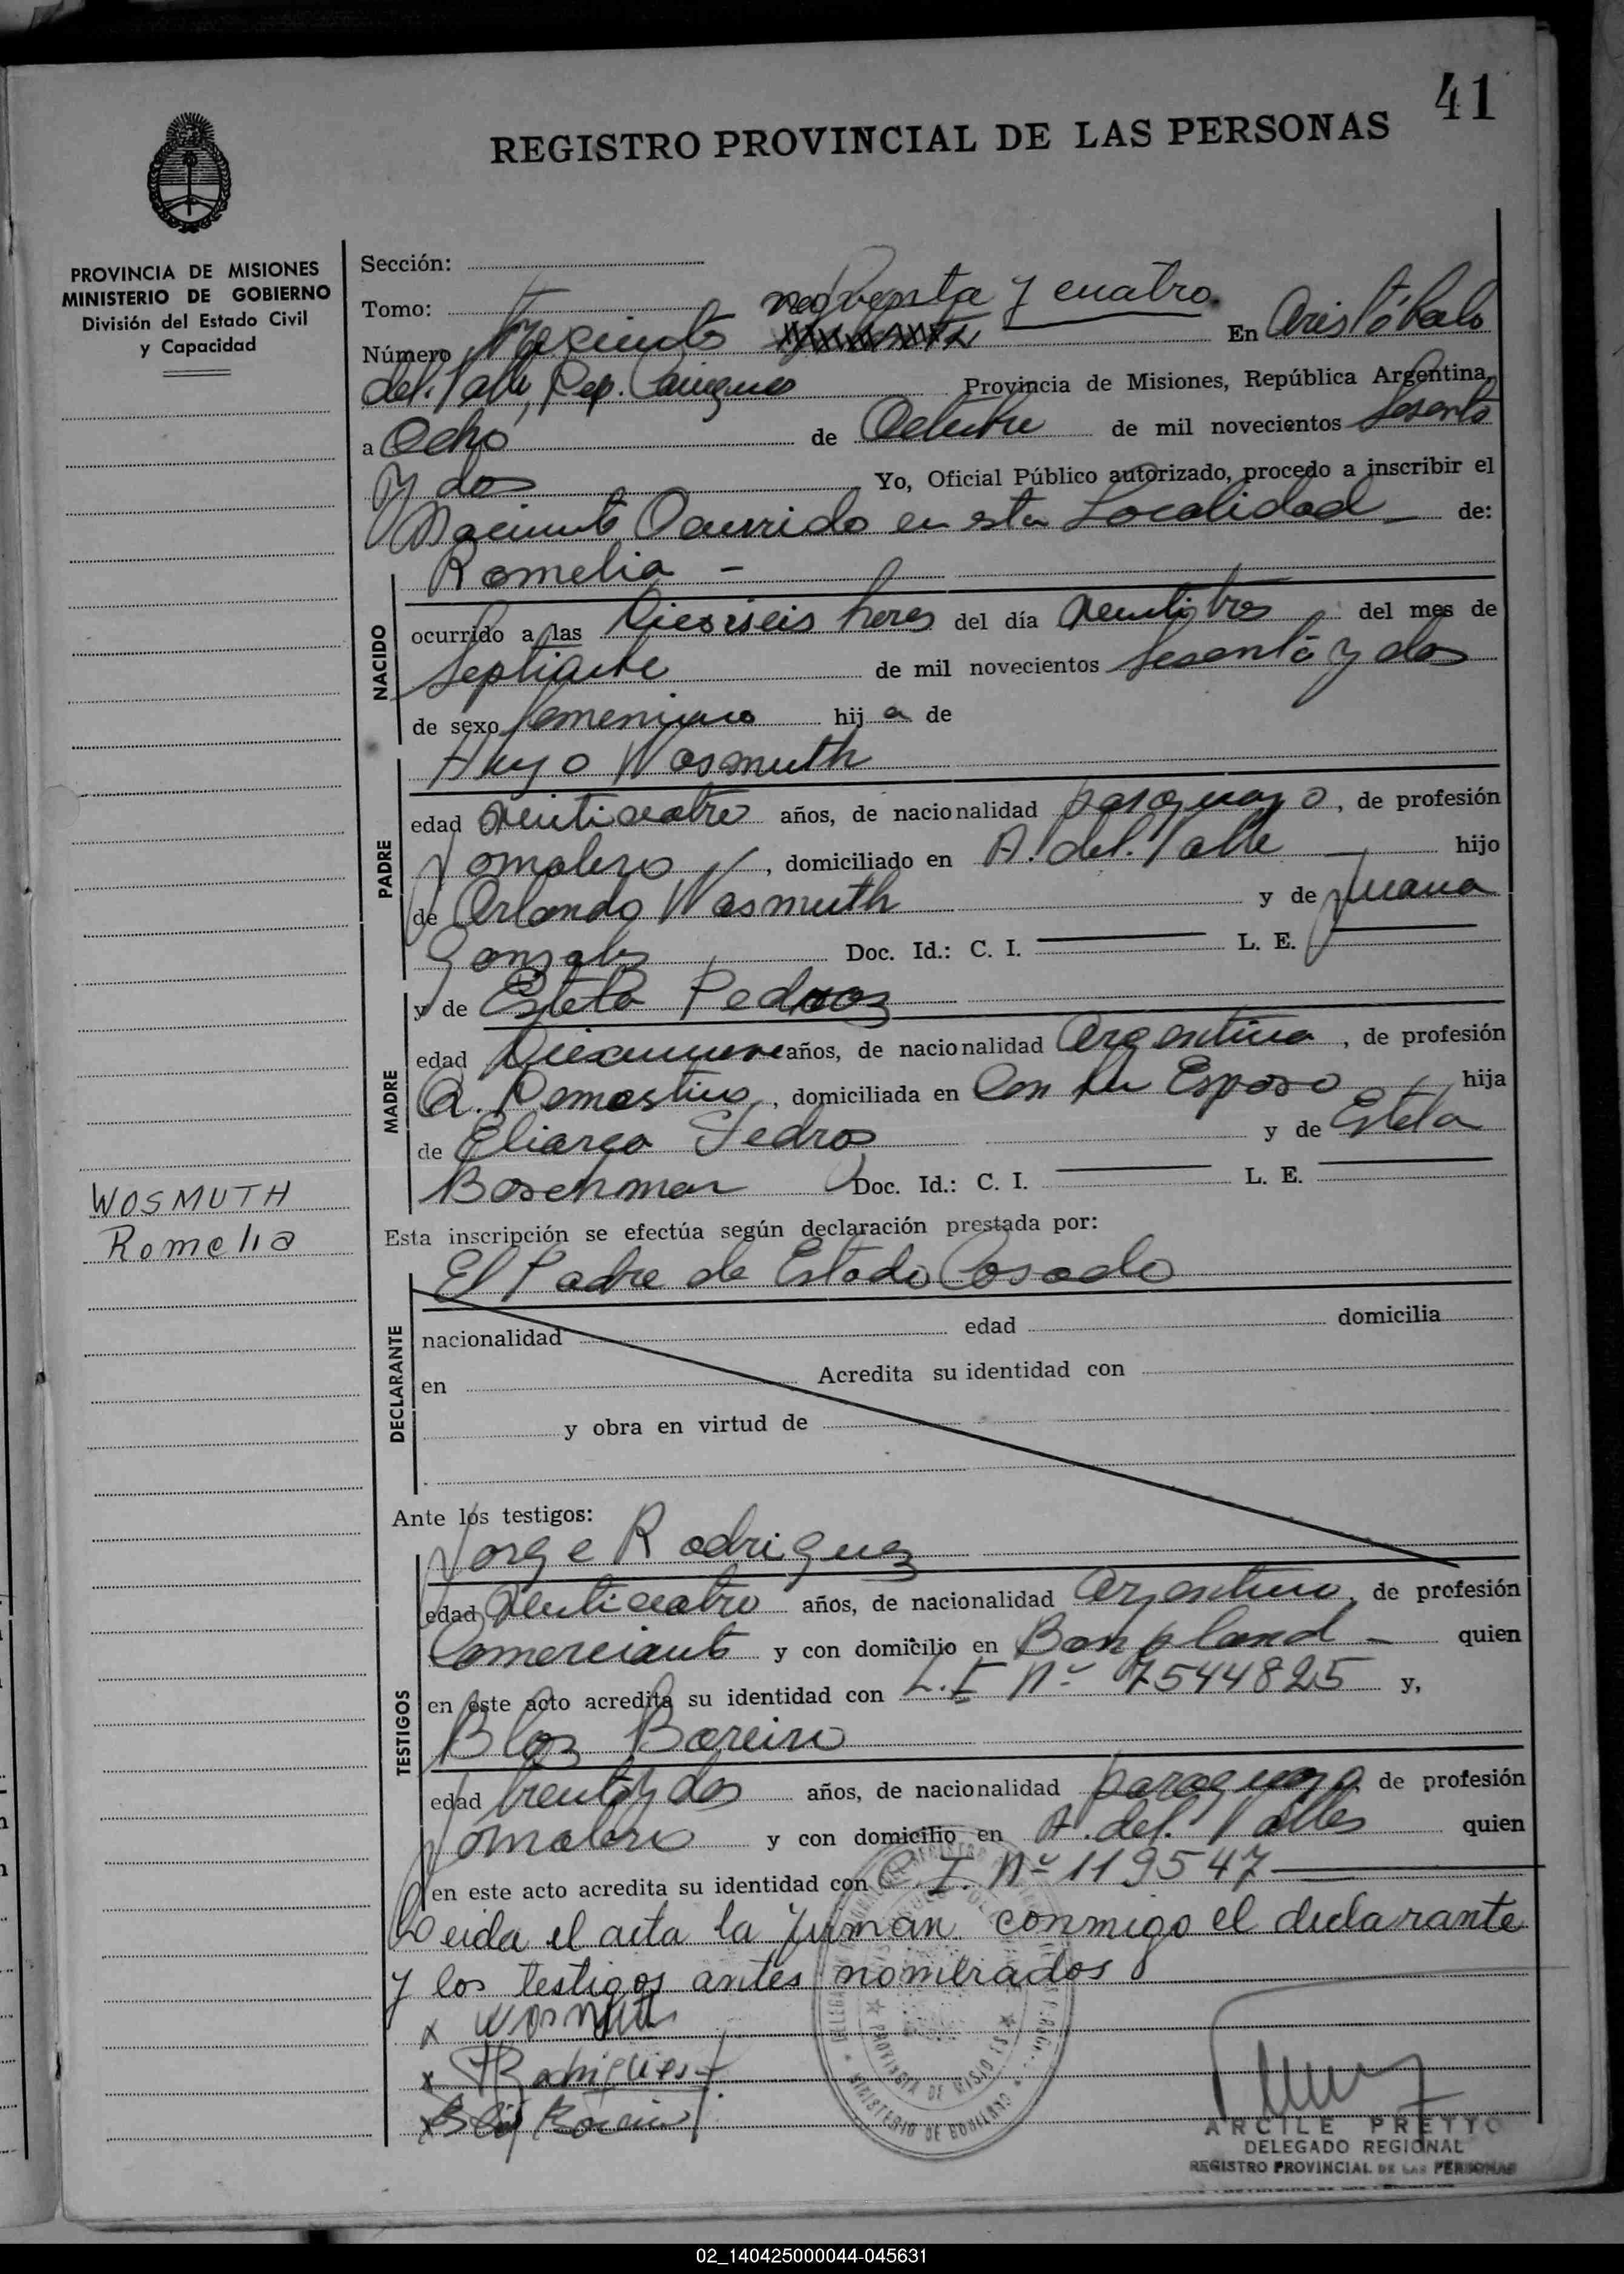 41
REGISTRO PROVINCIAL DE LAS PERSONAS
PROVINCIA DE MISIONES
MINISTERIO DE GOBIERNO
División del Estado Civil
y Capacidad
Sección:
Tomo:
y cuatro
Número Trescientos En Aristóbulo
del Valle, Dep. Cainguas Provincia de Misiones, República Argentina,
a Ocho de Octubre de mil novecientos Sesenta
y dos Yo, Oficial Público autorizado, procedo a inscribir el
Nacimiento Ocurrido en esta Localidad de:
Romelia -
NACIDO
ocurrido a las Dieciseis horas del día veintitres del mes de
Septiembre de mil novecientos Sesenta y dos
de sexo femenino hij a de
Hugo Wosmuth
PADRE
edad veinticuatro años, de nacionalidad paraguayo, de profesión
Jornalero, domiciliado en A. del. Valle hijo
de Orlando Wosmuth y de Juana
Gonzalez Doc. Id.: C. I. L. E.
MADRE
y de Estela Pedrozo
edad Diecinueve años, de nacionalidad Argentina, de profesión
Q. Domesticos, domiciliada en Con su Esposo hija
de Pedroz y de Estela
Doc. Id.: C. I. L. E.
WOSMUTH
Romelia
Esta inscripción se efectúa según declaración prestada por:
El Padre de Estado Casado
DECLARANTE
nacionalidad edad domicilia
en Acredita su identidad con
y obra en virtud de
Ante los testigos:
Jorge Rodriguez
TESTIGOS
edad veinticuatro años, de nacionalidad Argentino, de profesión
Comerciante y con domicilio en Bonpland - quien
en este acto acredita su identidad con L.E Nº 7544825 y,
Blas Bareiro
edad treinta y dos años, de nacionalidad paraguayo de profesión
Jornalero y con domicilio en A. del. Valles quien
en este acto acredita su identidad con C. I. Nº 119547
Leida el acta la firman conmigo el declarante
y los testigos antes nombrados
x Wosmuth
x Rodriguez
x Blas Bareiro
PROVINCIA DE MISIONES
MINISTERIO DE GOBIERNO
ARCILE PREYTO
DELEGADO REGIONAL
REGISTRO PROVINCIAL DE LAS PERSONAS
02_140425000044-045631